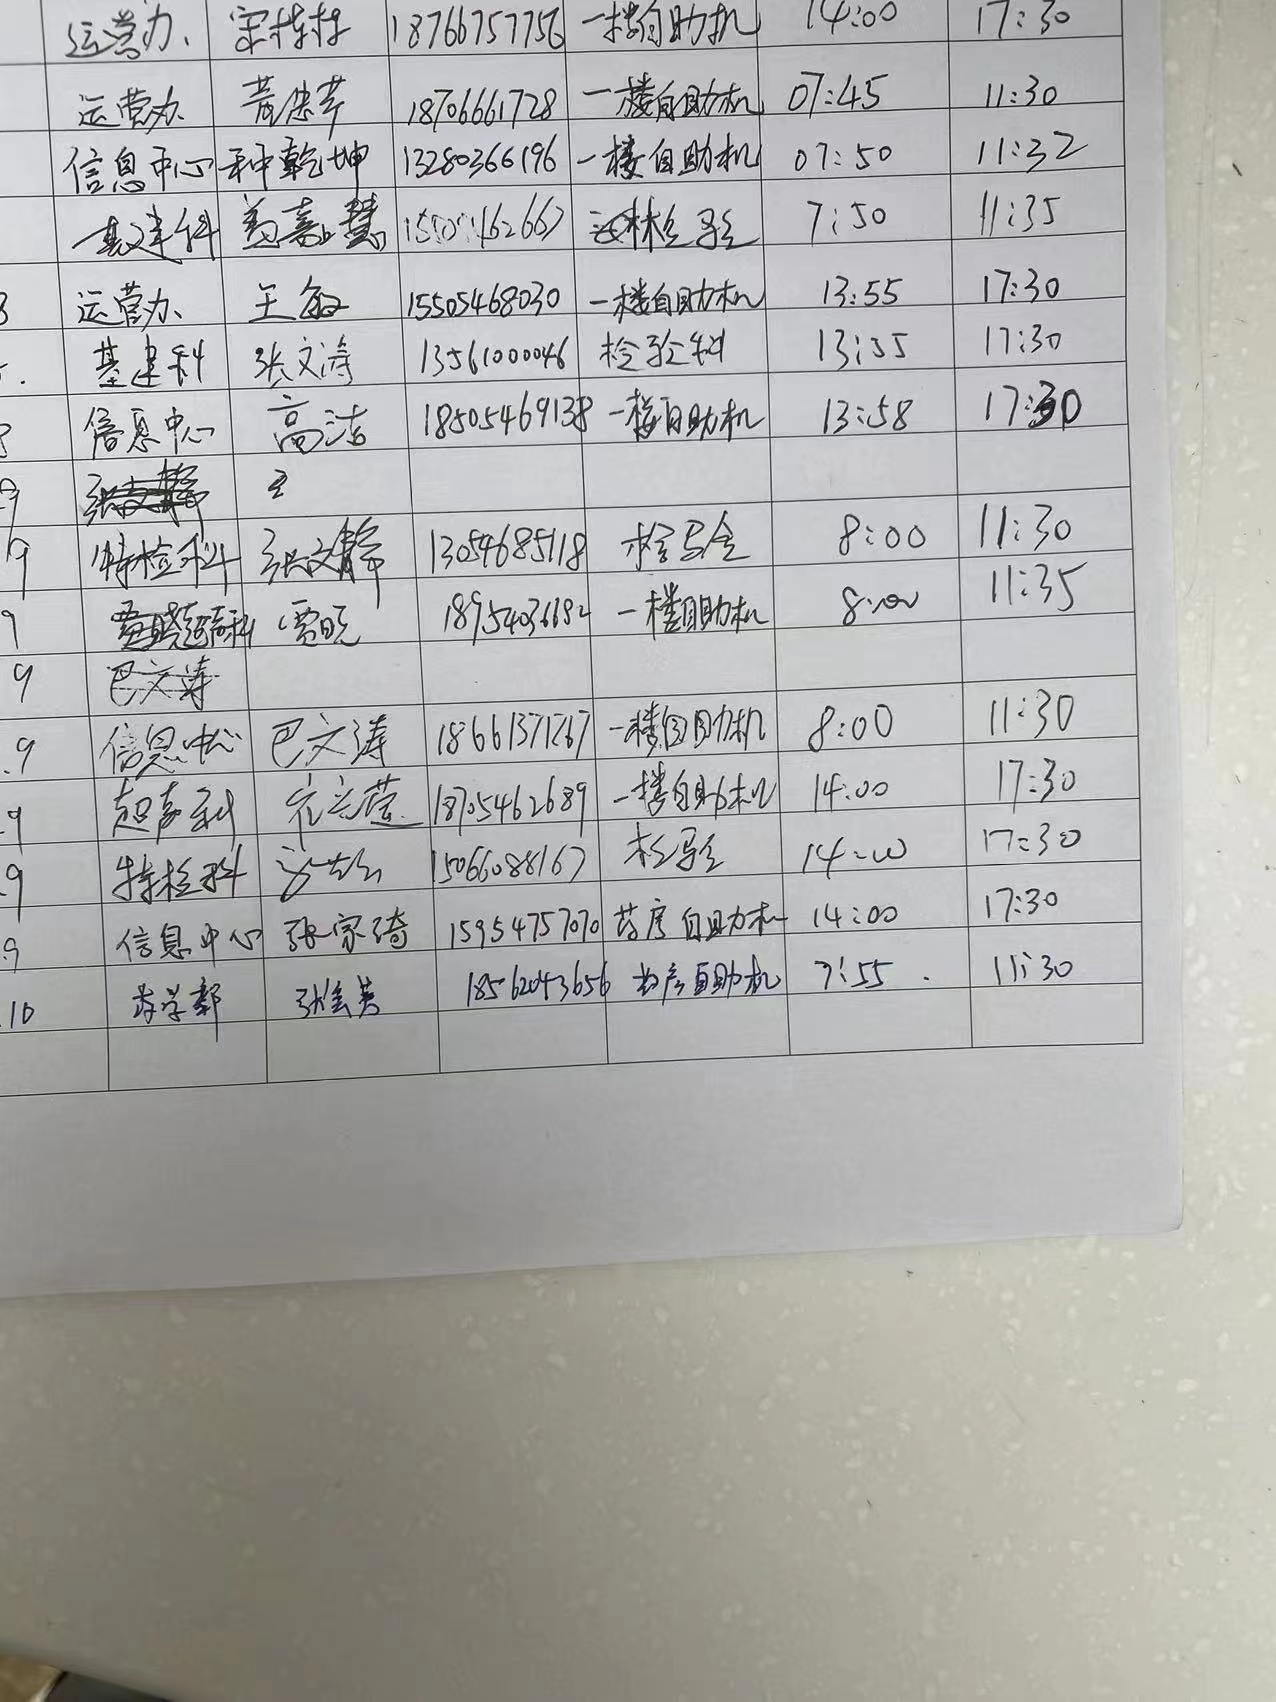 运营办 宋 18766757756 一楼自助机 14:00 17:30
运营办 18706661728 一楼自助机 07:45 11:30
信息中心 种乾坤 13280366196 一楼自助机 07:50 11:32
基建科 嘉慧 检验 7:50 11:35
8 运营办 王敏 15505468030 一楼自助机 13:55 17:30
基建科 张文涛 13561000046 检验科 13:55 17:30
8 信息中心 高洁 18505469138 一楼自助机 13:58 17:30
9 张文静
9 特检科 张文静 13054685118 检验 8:00 11:30
9 超声科 贾晓 一楼自助机 8:00 11:35
9 巴文涛
.9 信息中心 巴文涛 18661371267 一楼自助机 8:00 11:30
.9 超声科 18705462689 一楼自助机 14:00 17:30
.9 特检科 15066088167 检验 14:00 17:30
.9 信息中心 张家琦 15954757070 药房自助机 14:00 17:30
.10 药学部 张 18562043656 药房自助机 7:55 11:30